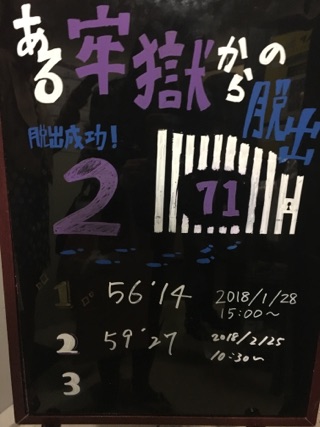 ある牢獄からの
脱出
脱出成功!
2
71
1 56'14 2018/1/28
15:00〜
2 59'27 2018/2/25
10:30〜
3